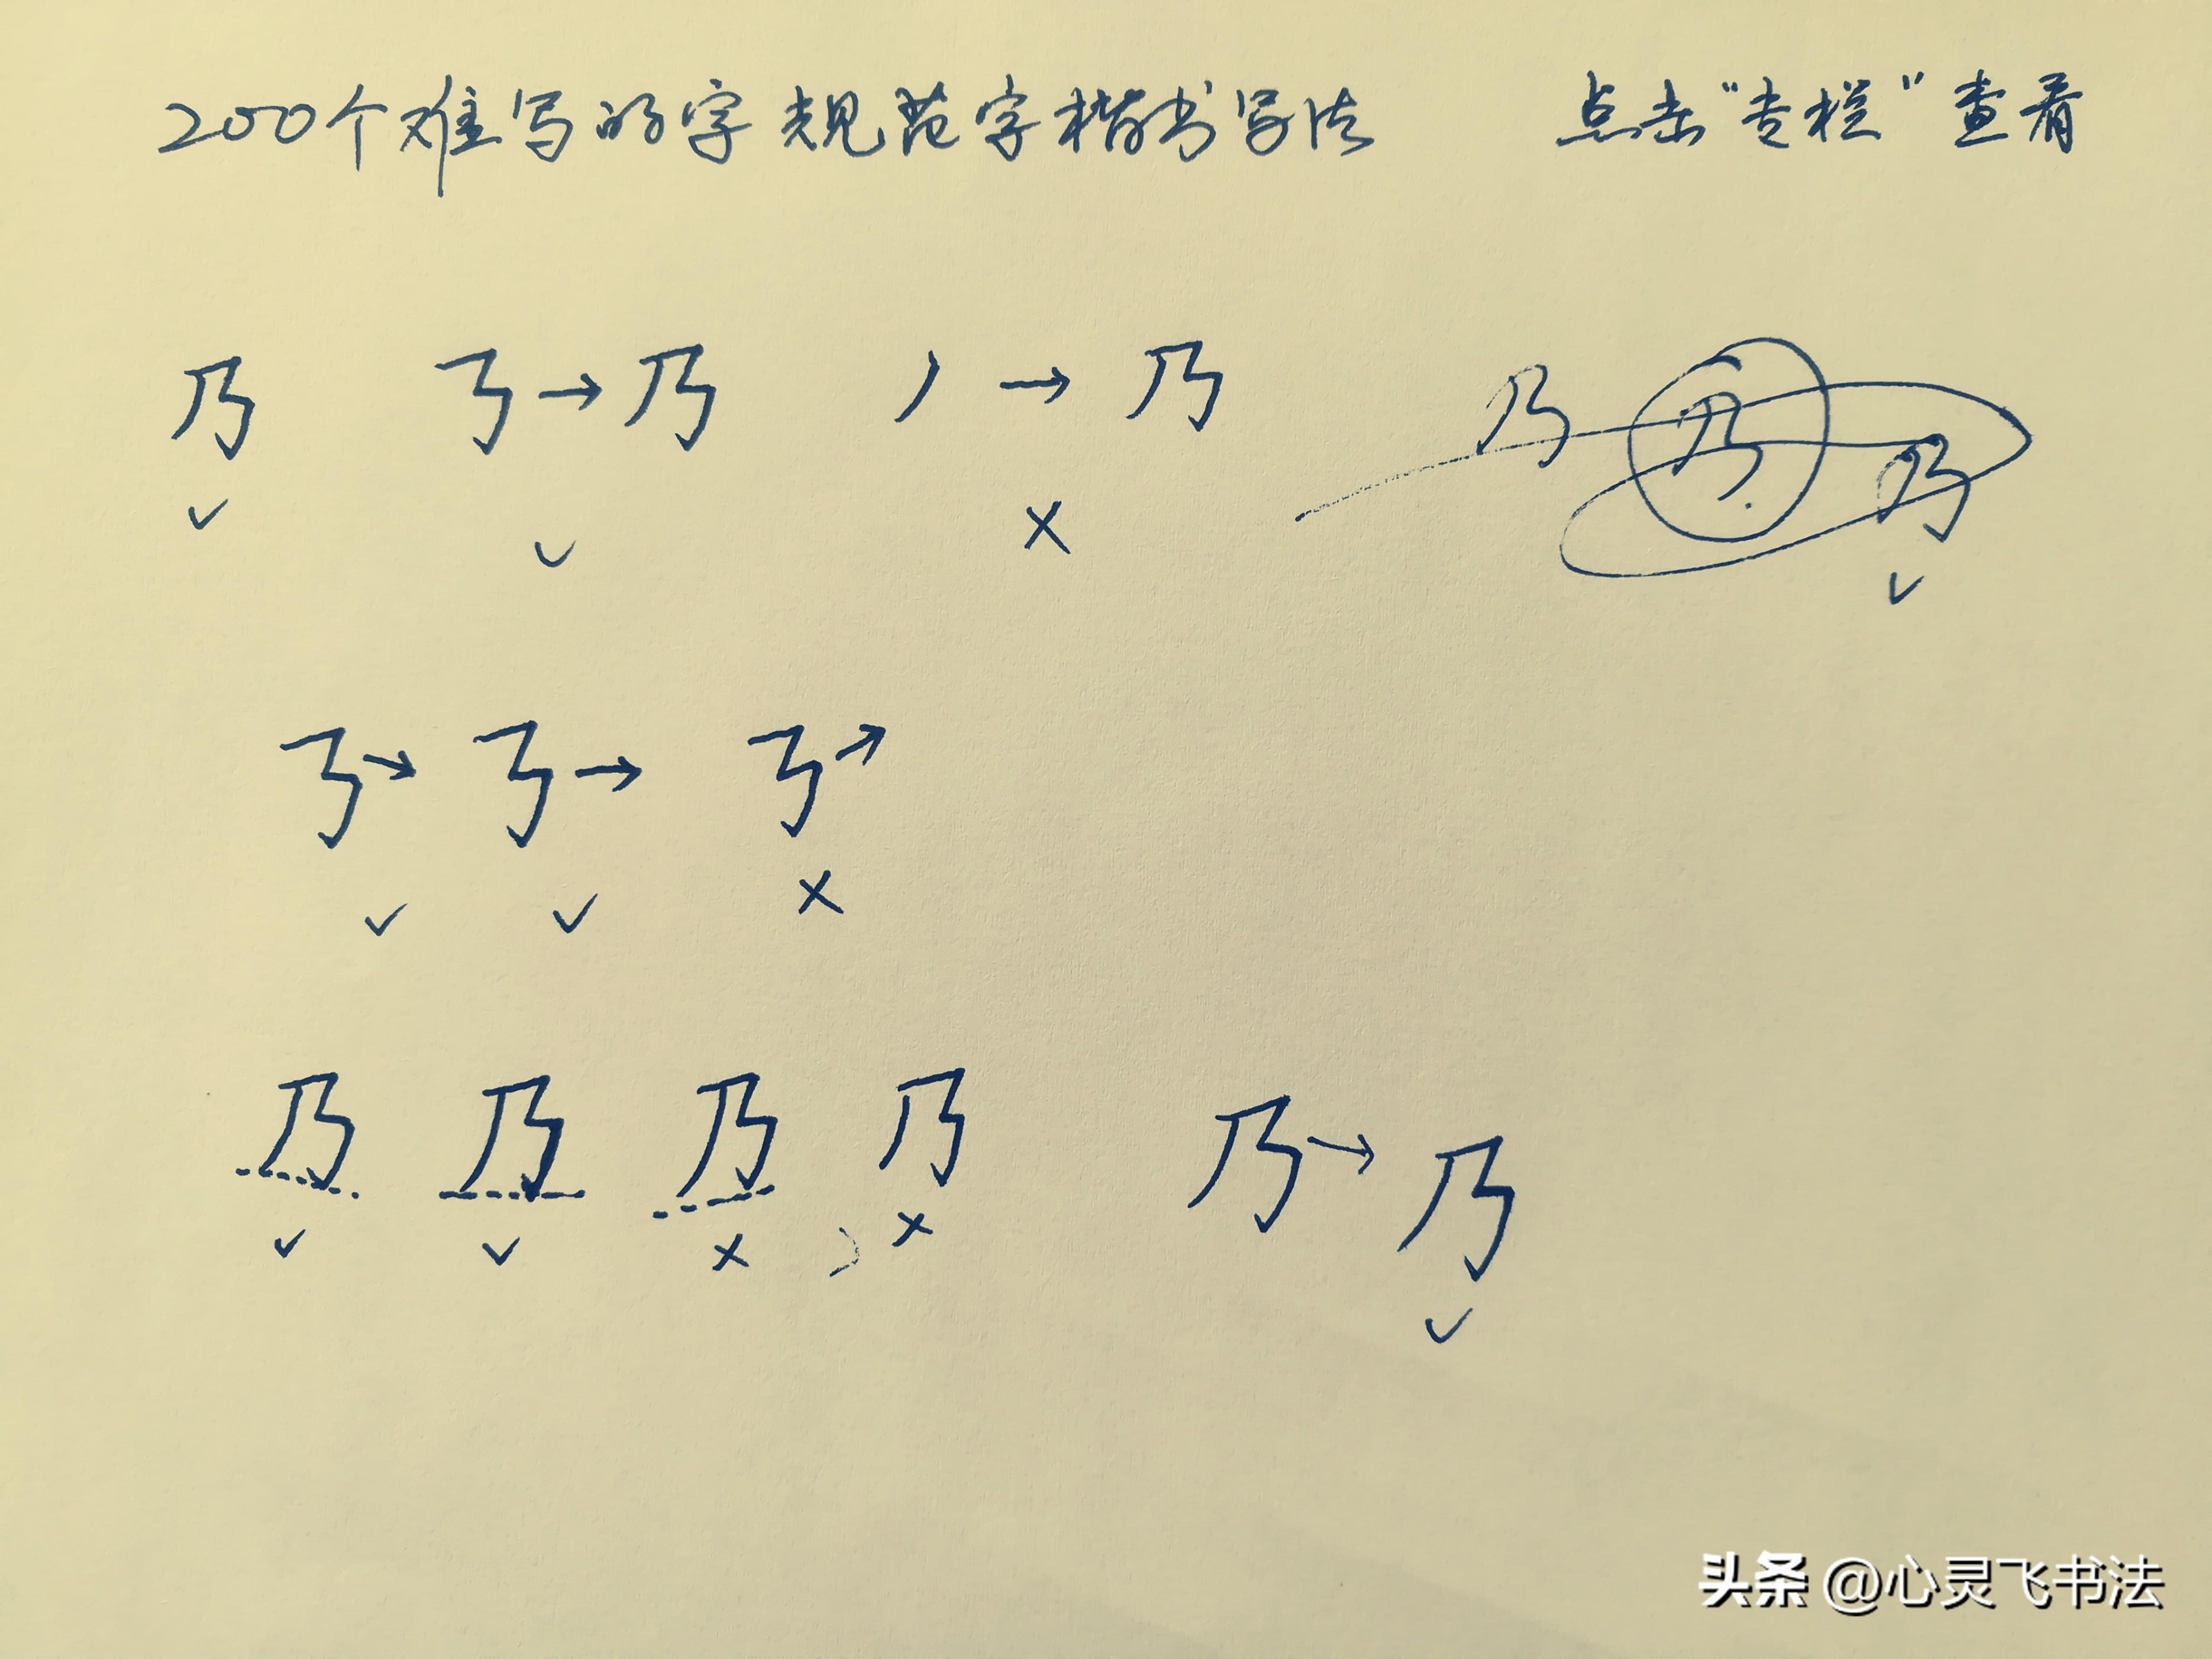 200个难写的字规范字楷书写法 点击“专栏”查看
乃 ㇡→乃 丿→乃 乃 乃 乃
✓ ✓ × ✓
㇡→ ㇡→ ㇡↗
✓ ✓ ×
乃 乃 乃 乃 乃→乃
✓ ✓ × × ✓
头条 @心灵飞书法